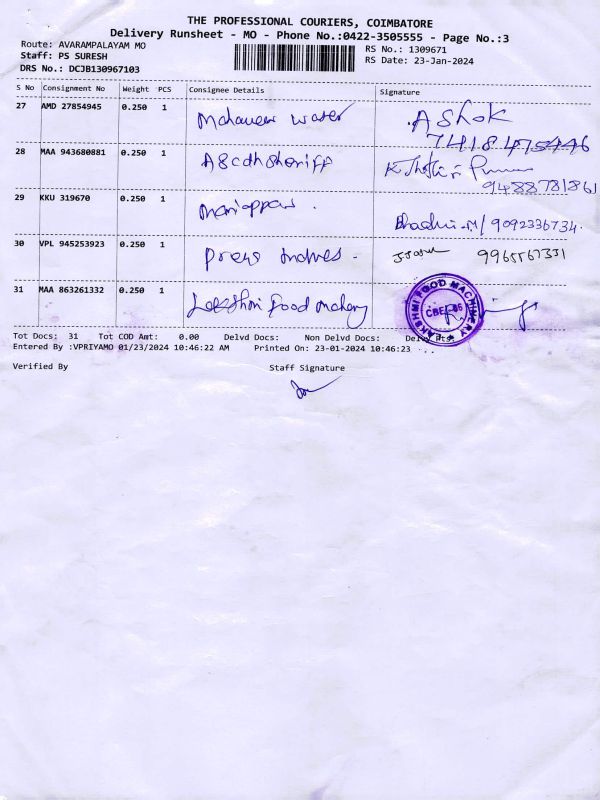 THE PROFESSIONAL COURIERS, COIMBATORE
Delivery Runsheet - MO - Phone No.:0422-3505555 - Page No.:3
Route: AVARAMPALAYAM MO
RS No.: 1309671
Staff: PS SURESH
RS Date: 23-Jan-2024
DRS No.: DCJB130967103
S No Consignment No Weight PCS Consignee Details Signature
27 AMD 27854945 0.250 1 Mahaveer water AShok
7418475446
28 MAA 943680881 0.250 1
9488781861
29 KKU 319670 0.250 1 Mariappan . 9092336734.
30 VPL 945253923 0.250 1 9965567331
31 MAA 863261332 0.250 1 Lakshmi food
LAKSHMI FOOD MACHINERY
CBE
Tot Docs: 31 Tot COD Amt: 0.00 Delvd Docs: Non Delvd Docs:
Entered By :VPRIYAMO 01/23/2024 10:46:22 AM Printed On: 23-01-2024 10:46:23 ...
Verified By Staff Signature